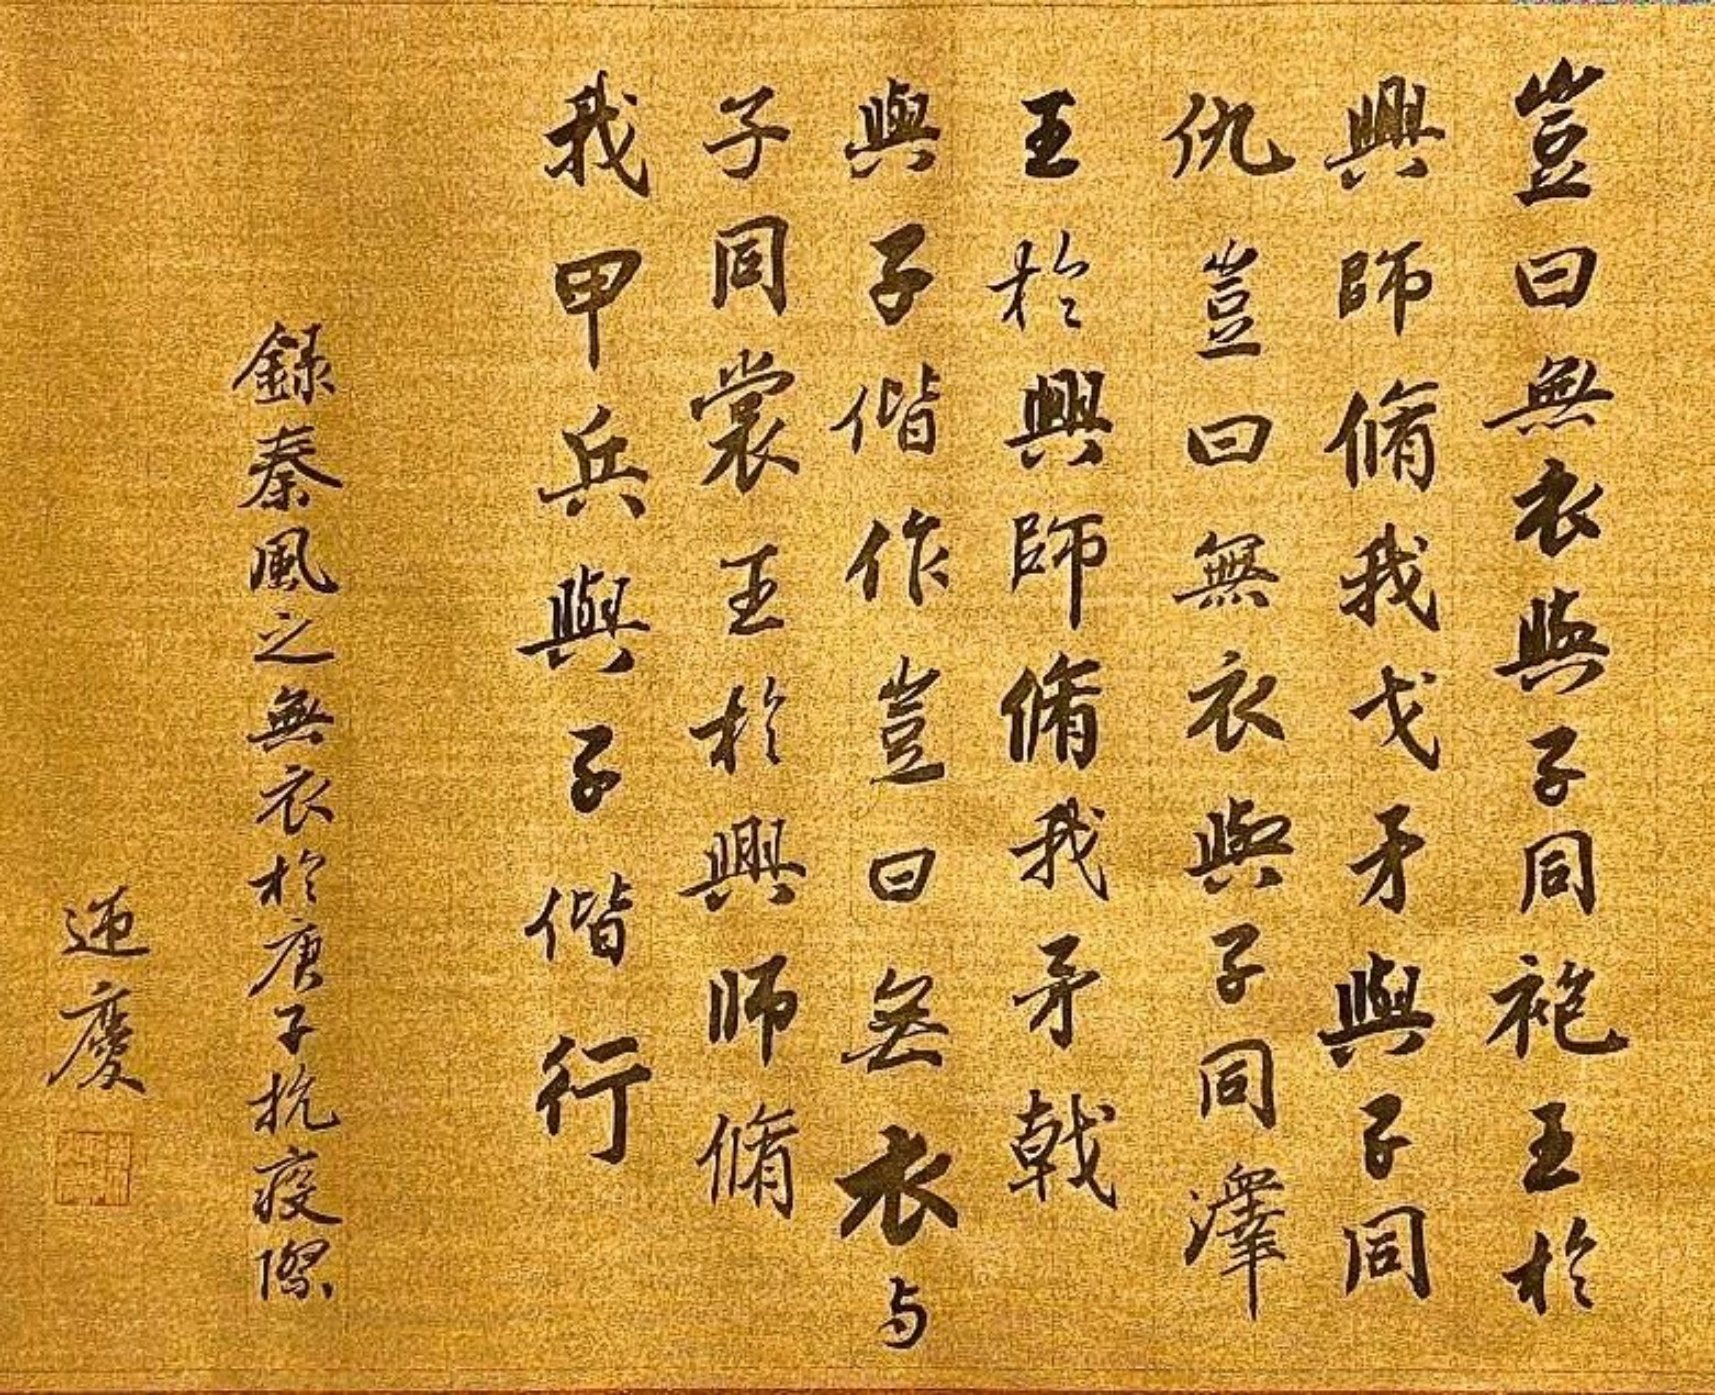 豈曰無衣與子同袍王於
興師脩我戈矛與子同
仇豈曰無衣與子同澤
王於興師脩我矛戟
與子偕作豈曰無衣与
子同裳王於興師脩
我甲兵與子偕行
録秦風之無衣於庚子抗疫際
迎慶